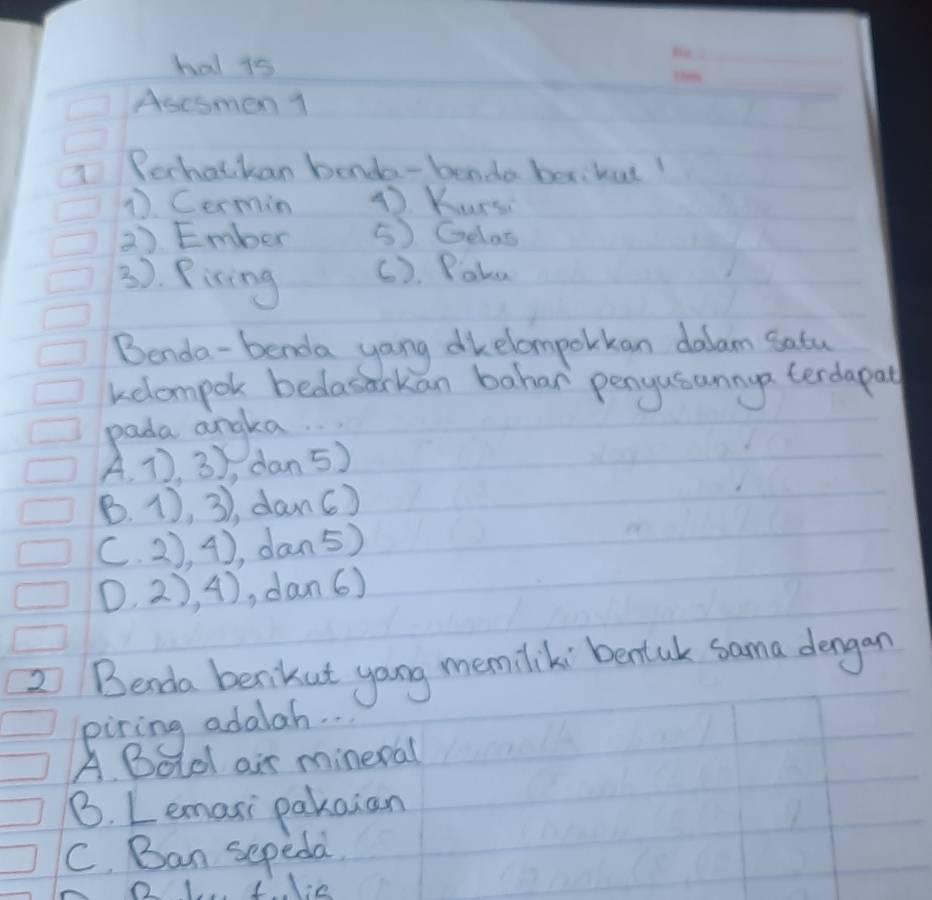 hal 15
Asesmen 1
1 Perhatikan benda-benda berikut!
1). Cermin 4). Kursi
2). Ember 5) Gelas
3). Piring 6). Paku
Benda-benda yang dkelompokkan dalam satu
kelompok bedasarkan bahan penyusunnya terdapat
pada angka ...
A. 1), 3), dan 5)
B. 1), 3), dan 6)
C. 2), 4), dan 5)
D. 2), 4), dan 6)
2 Benda berikut yang memiliki bentuk sama dengan
piring adalah...
A. Botol air mineral
B. Lemari pakaian
C. Ban sepeda
D. Buku tulis